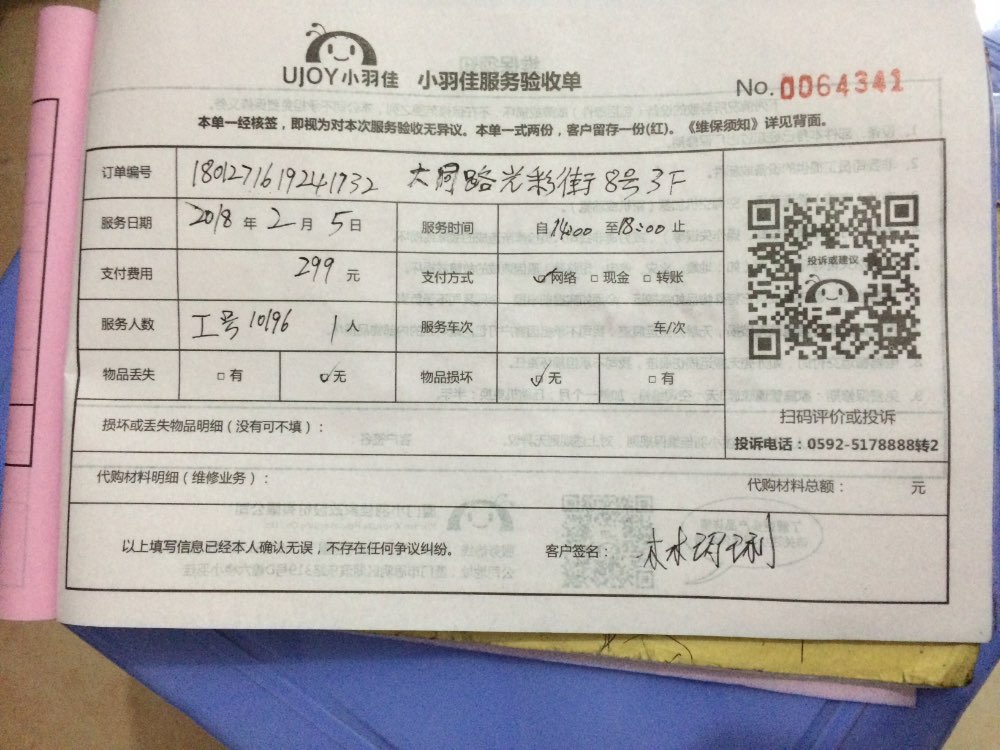 UJOY小羽佳 小羽佳服务验收单 No. 0064341
本单一经核签，即视为对本次服务验收无异议。本单一式两份，客户留存一份(红)。《维保须知》详见背面。
订单编号 18012716192411732 大同路光彩街8号3F
服务日期 2018 年 2 月 5 日 服务时间 自14:00 至18:00 止
支付费用 299 元 支付方式 ☑网络 □现金 □转账
服务人数 工号10196 1人 服务车次 车/次
物品丢失 □有 ☑无 物品损坏 ☑无 □有
投诉或建议
扫码评价或投诉
投诉电话：0592-5178888转2
损坏或丢失物品明细（没有可不填）：
代购材料明细（维修业务）： 代购材料总额： 元
以上填写信息已经本人确认无误，不存在任何争议纠纷。 客户签名：